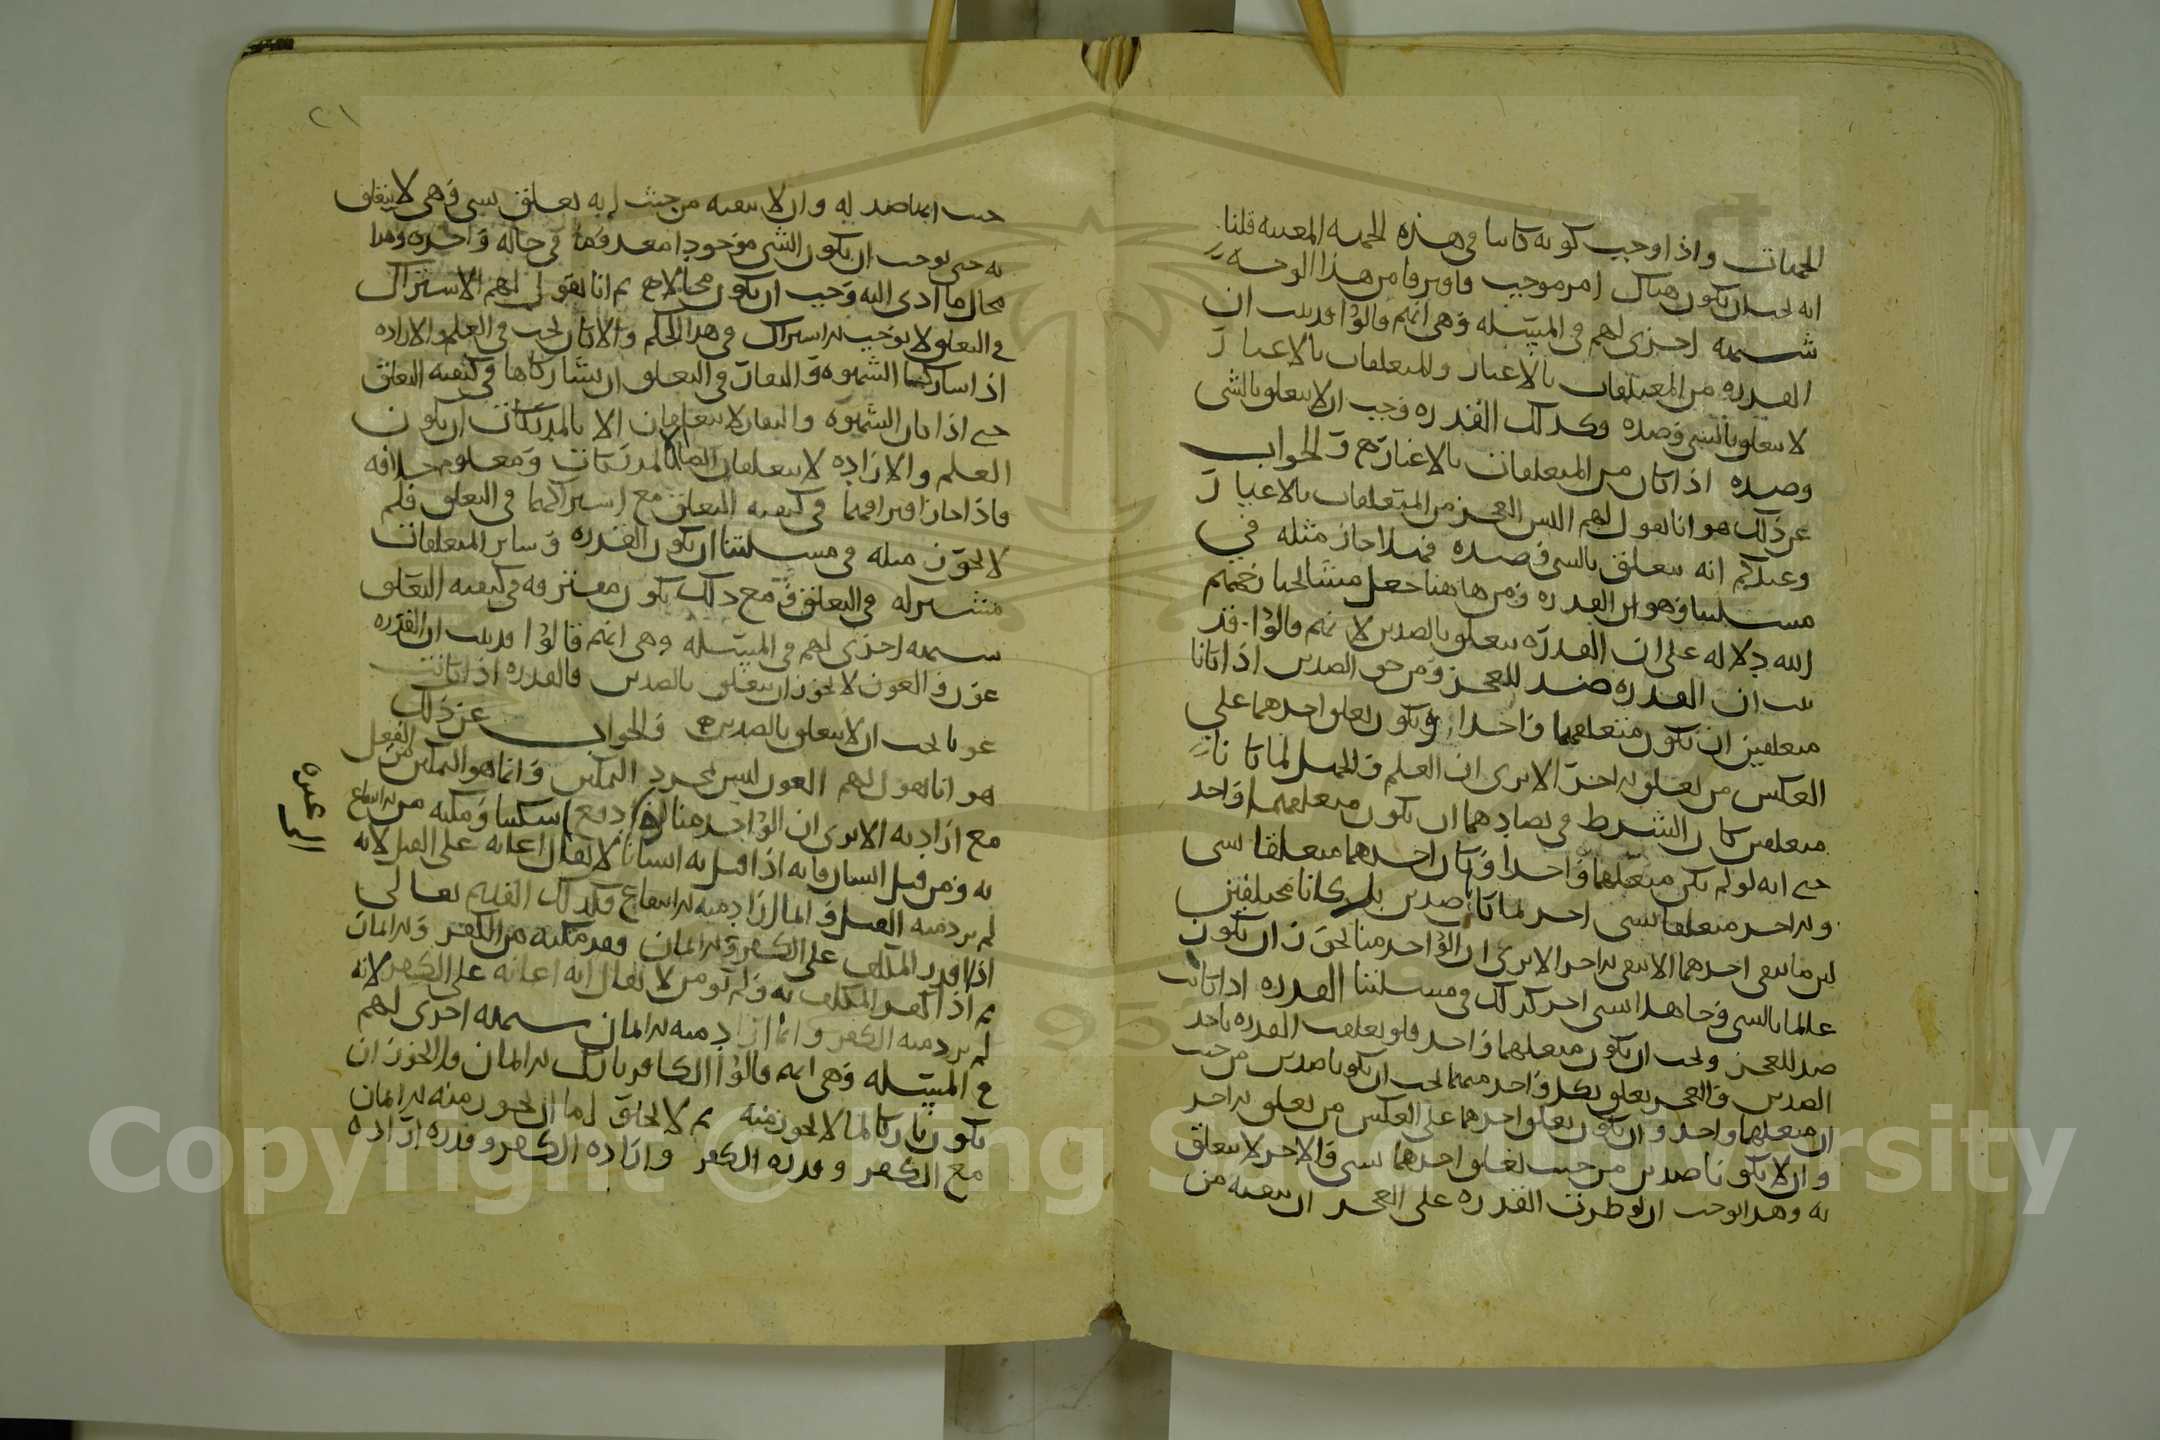 الجهات واذا وجب كونه كاينا في هذه الجهة المعينة قلنا
انه يجب ان يكون هناك امر موجب فاوترفا من هذا الوجه
شبهة اخرى لهم في المسئلة وهي انهم قالوا قد ثبت ان
القدرة من المتعلقات بالاغيار وللمتعلقات بالاغيار
لا يتعلق بالشي وضده وكذلك القدرة فوجب ان لا يتعلق بالشي
وضده اذا كان من المتعلقات بالاغيار والجواب
عن ذلك هو انا نقول لهم اليس العجز من المتعلقات بالاغيار
وعندكم انه يتعلق بالشي وضده فهلا جاز مثله في
مسئلتنا وهو ان القدرة ومن هاهنا جعل مشايخنا رحمهم
الله دلالة على ان القدرة يتعلق بالضدين لانهم قالوا قد
ثبت ان القدرة ضد للعجز ومن حق الضدين اذا كانا
متعلقين ان يكون متعلقهما واحدا ويكون تعلق احدهما على
العكس من تعلق الاخر الا ترى ان العلم والجهل لما كانا
متعلقين كان الشرط في تضادهما ان يكون متعلقهما واحد
حتى انه لو لم يكن متعلقهما واحدا وكان احدهما متعلقا بشي
والاخر متعلقا بشي اخر لما كانا ضدين بل كانا مختلفين
لان ما ينفي احدهما لا ينفي الاخر الا ترى ان الواحد منا يجوز ان يكون
عالما بالشي وجاهلا بشي اخر كذلك في مسئلتنا القدرة اذا كانت
ضد للعجز ويجب ان يكون متعلقهما واحد فلو تعلقت القدرة باحد
الضدين والعجز تعلق بكل واحد منهما يجب ان يكونا ضدين من حيث
ان متعلقهما واحد وان يكون تعلق احدهما على العكس من تعلق الاخر
وان لا يكونا ضدين من حيث تعلق احدهما بشي والاخر لا يتعلق
به وهذا يوجب ان لو طرت القدرة على العجز ان ينفيه من
٢١
حيث انها ضد له وان لا ينفيه من حيث انه تعلق بشي وهي لا يتعلق
به حتى يوجب ان يكون الشي موجودا معدوما في حالة واحدة وهذا
محال ما ادى اليه وجب ان يكون محالا ثم انا نقول لهم الاشتراك
في التعلق لا يوجب الاشتراك في هذا الحكم والا كان يجب في العلم والارادة
اذا شاركتهما الشهوة والنفار في التعلق ان يشاركاها في كيفية التعلق
حتى اذا كان الشهوة والنفار لا يتعلقان الا بالمدركات ان يكون
العلم والارادة لا يتعلقان الا بالمدركات ومعلوم خلافه
فاذا جاز افتراقهما في كيفية التعلق مع اشتراكهما في التعلق فلم
لا يجوز مثله في مسئلتنا ان يكون القدرة وساير المتعلقات
مشتركة في التعلق ومع ذلك يكون مفترقة في كيفية التعلق
شبهة اخرى لهم في المسئلة وهي انهم قالوا قد ثبت ان القدرة
عون والعون لا يجوز ان يتعلق بالضدين والقدرة اذا كانت
عونا يجب ان لا يتعلق بالضدين والجواب عن ذلك
هو انا نقول لهم العون ليس مجرد التمكين وانما هو التمكين من الفعل
مع ارادته الا ترى ان الواحد منا لو دفع سكينا ومكنه من الانتفاع
به ومن قتل انسان فانه اذا قتل به انسانا لا يقال اعانه على القتل لانه
لم يرد منه القتل وانما اراد منه الانتفاع وكذلك القديم تعالى
اذا اقدر المكلف على الكفر والايمان وقد مكنه من الكفر والايمان
ثم اذا كفر المكلف به ولم يؤمن لا يقال انه اعانه على الكفر لانه
لم يرد منه الكفر وانما اراد منه الايمان شبهة اخرى لهم
في المسئلة وهي انهم قالوا الكافر تارك الايمان ولا يجوز ان
يكون تاركا لما لا يجوز منه ثم لا يخلو اما ان يجوز منه الايمان
مع الكفر وقدرة الكفر وارادة الكفر وقدرة ارادة